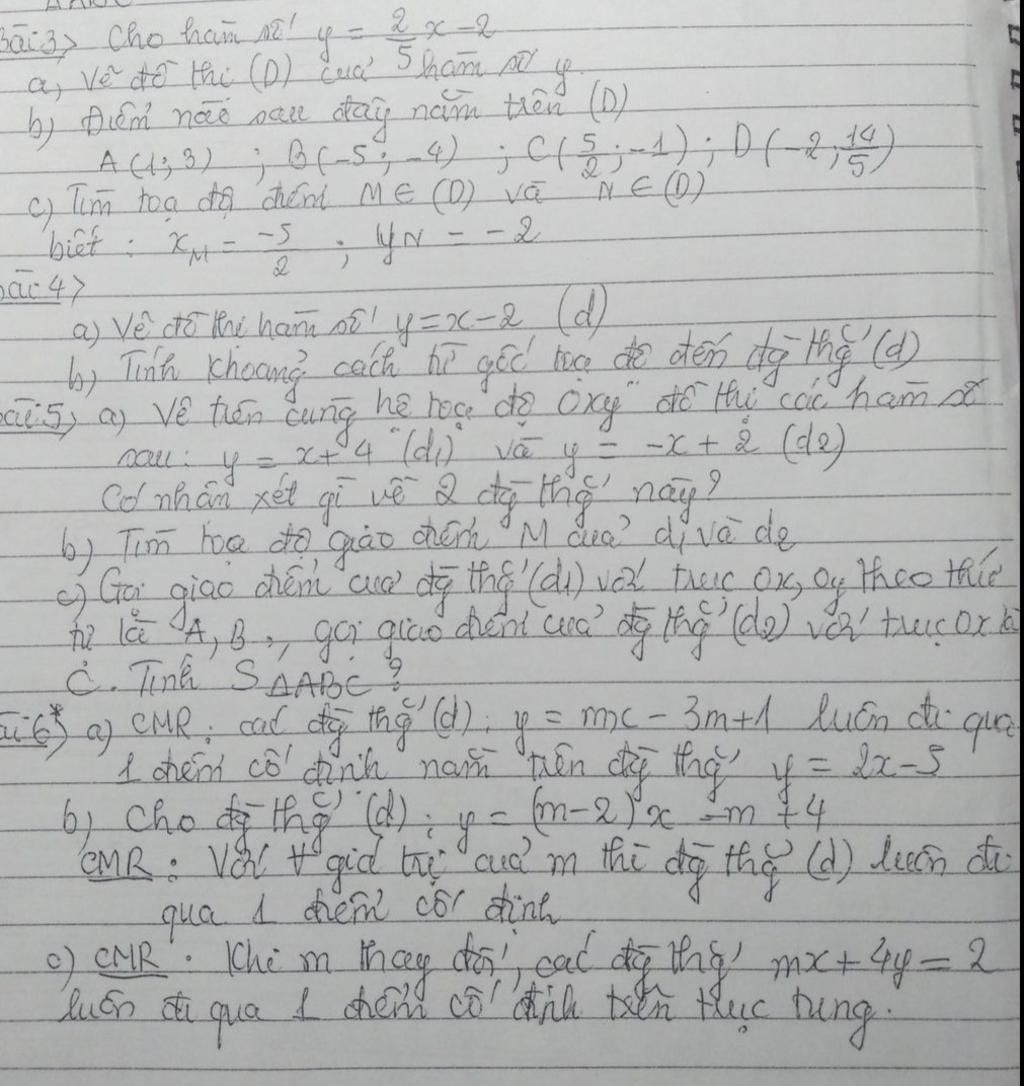 Bài 3> Cho hàm số y = 2/5 x - 2
a, Vẽ đồ thị (D) của hàm số y
b) Điểm nào sau đây nằm trên (D)
A(1; 3) ; B(-5; -4) ; C(5/2; -1) ; D(-2; 14/5)
c) Tìm toạ độ điểm M ∈ (D) và N ∈ (D)
biết : x_M = -5/2 ; y_N = -2
bài 4>
a) Vẽ đồ thị hàm số y = x - 2 (d)
b) Tính khoảng cách từ gốc toạ độ đến đg thg (d)
bài 5, a) Vẽ trên cùng hệ toạ độ Oxy đồ thị các hàm số
sau: y = x + 4 (d1) và y = -x + 2 (d2)
Có nhận xét gì về 2 đg thg này?
b) Tìm toạ độ giao điểm M của d1 và d2
c) Gọi giao điểm của đg thg (d1) với trục Ox, Oy theo thứ
tự là A, B, gọi giao điểm của đg thg (d2) với trục Ox là
C. Tính S_ΔABC ?
ài 6*) a) CMR: các đg thg (d): y = mx - 3m + 1 luôn đi qua
1 điểm cố định nằm trên đg thg y = 2x - 5
b) Cho đg thg (d): y = (m - 2)x - m + 4
CMR : Với ∀ giá trị của m thì đg thg (d) luôn đi
qua 1 điểm cố định
c) CMR : Khi m thay đổi, các đg thg mx + 4y = 2
luôn đi qua 1 điểm cố định trên trục tung.